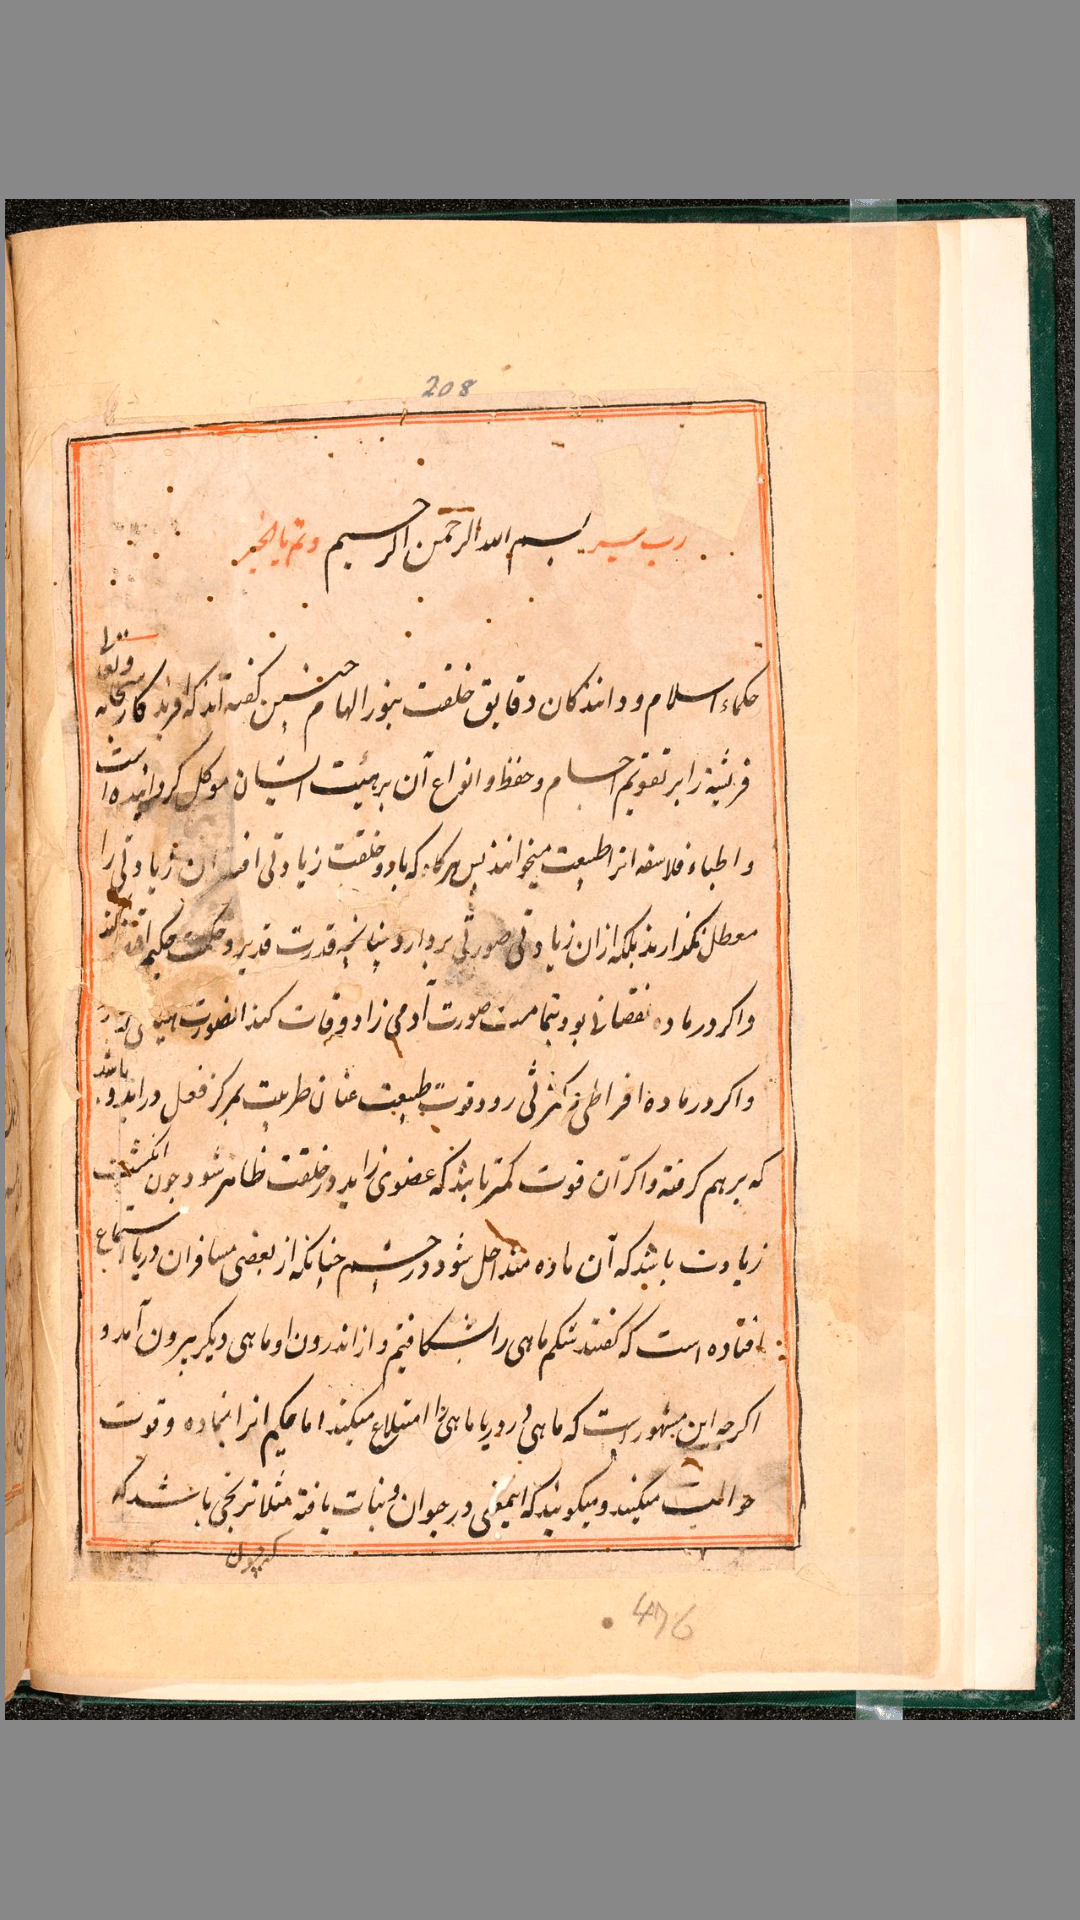 208
رب یسر بسم الله الرحمن الرحیم و تمم بالخیر
حکماء اسلام و دانندکان دقایق خلقت بنور الهام چنین کفته‌اند که افریدکار سبحانه و تعالی
فریشته را بر تقویم اجسام و حفظ و انواع آن بر هیئت ایشان موکل کردانیده است
و اطباء فلاسفه انرا طبیعت میخوانند پس هرکاه که باد و خلقت زیادتی افتد آن زیادتی را
معطل نکذارند بلکه ازان زیادتی صورتی بردارد چنانچه قدرت قدیر و حکمت حکیم اقتضا کند
و اکر در ماده نقصانی بود بتمامیت صورت آدمی زاد وفات کند انصورت
و اکر در ماده افراطی و کثرتی رود و قوت طبیعت عنان طربیت بمرکز فعل در اید و باشد
که بر هم کرفته و اکر آن قوت کمتر باشد که عضوی زاید در خلقت ظاهر شود چون انکشت
زیادت باشد که آن ماده متداخل شود در چشم چنانکه از بعضی مسافران دریا استماع
افتاده است که کفتند شکم ماهی را بشکافتیم و از اندرون او ماهی دیکر بیرون آمد و
اکرچه این مشهور است که ماهی در دریا ماهی را ابتلاع میکند اما حکیم انرا بماده و قوت
حوالت میکنند و میکویند که اینمعنی در حیوان و نبات یافته مثلا ترنجی باشد که
که چون
476